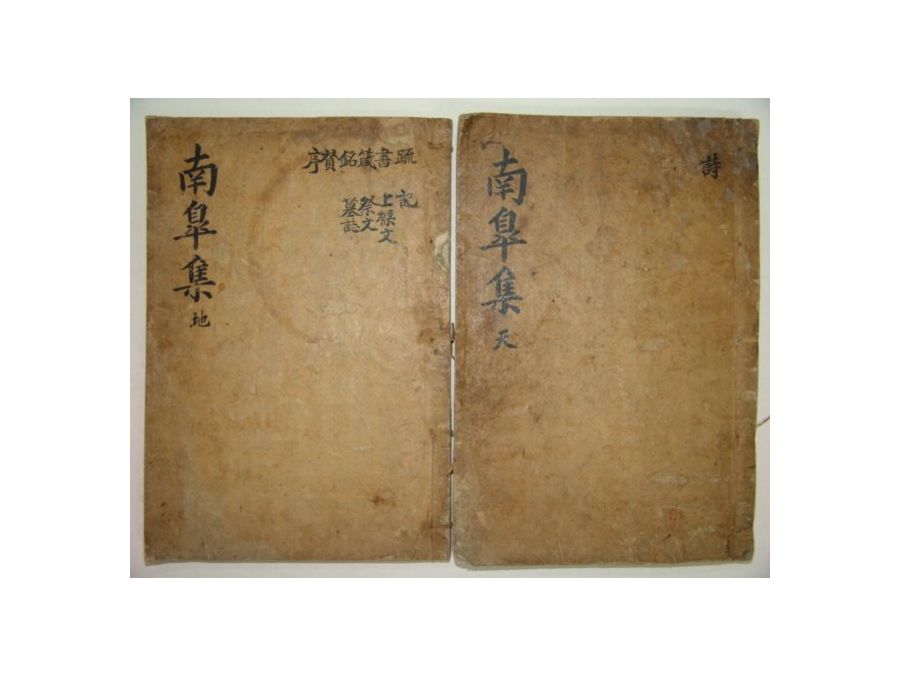 詩
南皐集
天
疏書箴銘贊序
記
上樑文
祭文
墓誌
南皐集
地